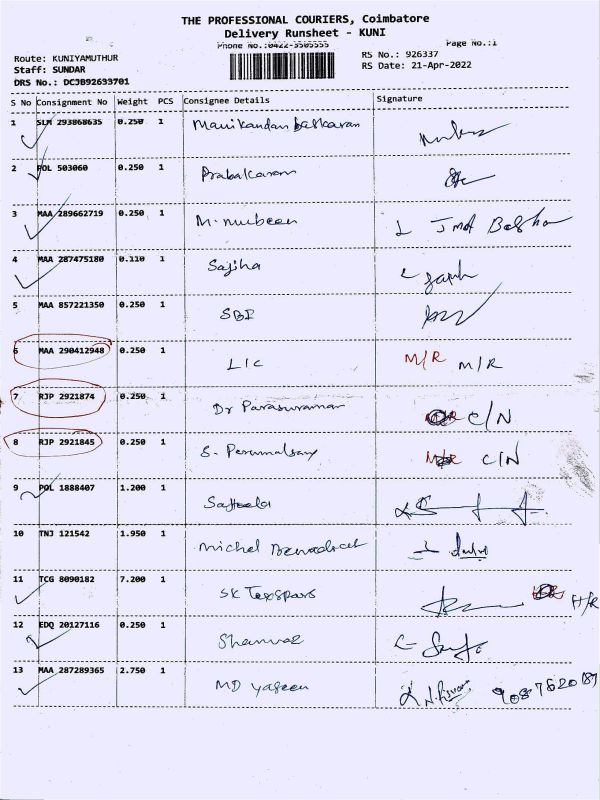 THE PROFESSIONAL COURIERS, Coimbatore
Delivery Runsheet - KUNI
Phone No.:0422-3505555 Page No.:1
Route: KUNIYAMUTHUR RS No.: 926337
Staff: SUNDAR RS Date: 21-Apr-2022
DRS No.: DCJB92633701
S No Consignment No Weight PCS Consignee Details Signature
1 SLM 293868635 0.250 1 Manikandan baskaran
2 POL 503060 0.250 1 Prabakaran
3 MAA 289662719 0.250 1 M. Mubeen
4 MAA 287475180 0.110 1 Sajiha
5 MAA 857221350 0.250 1 SBI
6 MAA 290412948 0.250 1 LIC M/R M/R
7 RJP 2921874 0.250 1 Dr Parasuraman C/N
8 RJP 2921845 0.250 1 S. Perumalsamy C/N
9 POL 1888407 1.200 1
10 TNJ 121542 1.950 1 Michel
11 TCG 8090182 7.200 1 SK H/R
12 EDQ 20127116 0.250 1
13 MAA 287289365 2.750 1 MD Yaseen